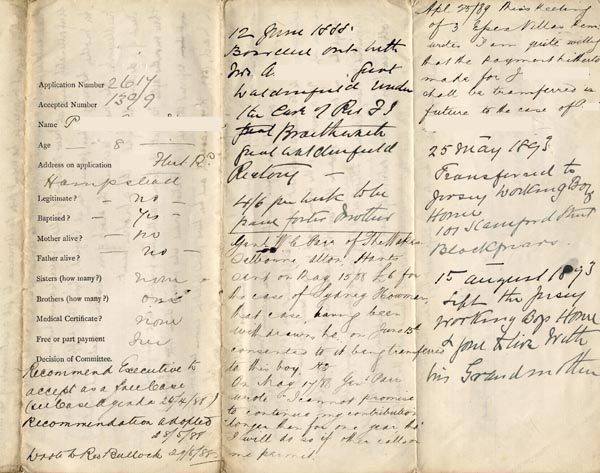 Application Number 2617
Accepted Number 1309
Name P
Age - 8 -
Address on application Flut Rd.
Hampstead
Legitimate? - no -
Baptised? - Yes -
Mother alive? - no
Father alive? - no -
Sisters (how many?) none
Brothers (how many?) one
Medical Certificate? none
Free or part payment free
Decision of Committee.
Recommend Executive to
accept as a free Case
(see Case Agenda 24/4/88)
Recommendation adopted
28/5/88
Wrote to Rev Bullock 29/5/88
12 June 1888.
Boarded out with
Mrs. A Great
Waldingfield under
the Care of Rev F J
Braithwaite
Great Waldingfield
Rectory -
4/6 per week to be
paid foster mother
Genl. Pair of The
Melbourne, Herts
sent on May 15/88 £6 for
the case of Sydney
that case having been
withdrawn he on June 13th
consented to it being transferred
to this boy.
On May 17/88 Genl. Pair
wrote "I cannot promise
to continue my contribution
longer than for one year but
I will do so if other calls on
me permit.
Apl. 25/89 Miss Keeling
of 3 Villas
writes I am quite willing
that the payment hitherto
made for J
shall be transferred in
future to the case of A
25 May 1893
Transferred to
Jersey Working Boys
Home
101 Stamford Street
Blackfriars.
15 August 1893
Left the Jersey
Working Boys Home
& gone to live with
his Grandmother